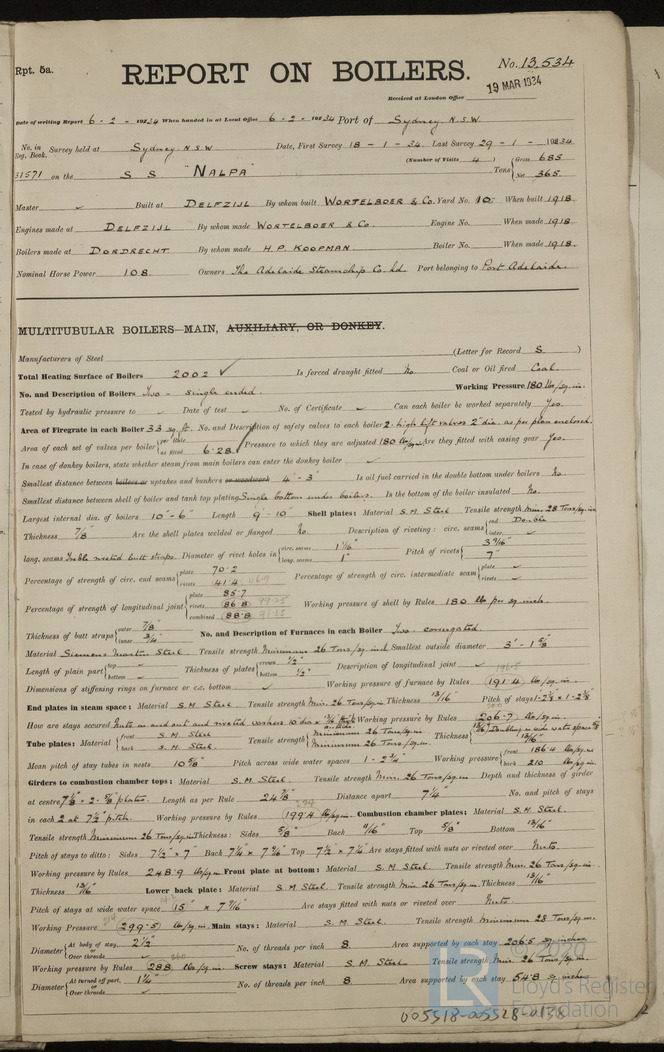 Rpt. 5a.
No. 13,534
REPORT ON BOILERS.
19 MAR 1934
Received at London Office
Date of writing Report 6 - 2 - 1934 When handed in at Local Office 6 - 2 - 1934 Port of Sydney N.S.W.
No. in Reg. Book. Survey held at Sydney N.S.W. Date, First Survey 18 - 1 - 34 Last Survey 29 - 1 - 1934
(Number of Visits 4)
31571 on the S S "NALPA" Tons Gross 685 Net 365
Master Built at DELFZIJL By whom built WORTELBOER & Co. Yard No. 10 When built 1918
Engines made at DELFZIJL By whom made WORTELBOER & Co. Engine No. When made 1918
Boilers made at DORDRECHT By whom made H.P. KOOPMAN Boiler No. When made 1918
Nominal Horse Power 108 Owners The Adelaide Steamship Co. Ld Port belonging to Port Adelaide
MULTITUBULAR BOILERS—MAIN, AUXILIARY, OR DONKEY.
Manufacturers of Steel (Letter for Record S )
Total Heating Surface of Boilers 2002 Is forced draught fitted No Coal or Oil fired Coal
No. and Description of Boilers Two - single ended Working Pressure 180 lbs/sq.in.
Tested by hydraulic pressure to Date of test No. of Certificate Can each boiler be worked separately Yes
Area of Firegrate in each Boiler 33 sq. ft. No. and Description of safety valves to each boiler 2 high lift valves 2" dia. as per plan enclosed
Area of each set of valves per boiler per Rule as fitted 6.28 Pressure to which they are adjusted 180 lbs/sq.in. Are they fitted with easing gear Yes
In case of donkey boilers, state whether steam from main boilers can enter the donkey boiler
Smallest distance between boilers or uptakes and bunkers or woodwork 4' - 3" Is oil fuel carried in the double bottom under boilers No
Smallest distance between shell of boiler and tank top plating Single bottom under boilers. Is the bottom of the boiler insulated No.
Largest internal dia. of boilers 10' - 6" Length 9' - 10" Shell plates: Material S.M. Steel Tensile strength Min. 28 Tons/sq.in.
Thickness 7/8" Are the shell plates welded or flanged No Description of riveting: circ. seams end Double inter.
long. seams Treble riveted butt straps. Diameter of rivet holes in circ. seams 1 1/16" long. seams 1" Pitch of rivets 3 3/16" 7"
Percentage of strength of circ. end seams plate 70.2 rivets 41.4 Percentage of strength of circ. intermediate seam plate rivets
Percentage of strength of longitudinal joint plate 85.7 rivets 86.8 combined 88.8 Working pressure of shell by Rules 180 lbs per sq. inch.
Thickness of butt straps outer 7/8" inner 3/4" No. and Description of Furnaces in each Boiler Two corrugated.
Material Siemens Martin Steel Tensile strength Minimum 26 Tons/sq.inch Smallest outside diameter 3' - 1 5/8"
Length of plain part top bottom Thickness of plates crown 1/2" bottom 1/2" Description of longitudinal joint
Dimensions of stiffening rings on furnace or c.c. bottom Working pressure of furnace by Rules (191.4) lbs/sq.in.
End plates in steam space: Material S.M. Steel Tensile strength Min. 26 Tons/sq.in Thickness 13/16" Pitch of stays
How are stays secured Nuts in and out and riveted washers Working pressure by Rules 206.7 lbs/sq.in.
Tube plates: Material front S.M. Steel back S.M. Steel. Tensile strength Minimum 26 Tons/sq.in. Minimum 26 Tons/sq.in. Thickness 13/16"
Mean pitch of stay tubes in nests 10 5/8" Pitch across wide water spaces 1 - 2 3/4" Working pressure front 186.4 lbs/sq.in back 210 lbs/sq.in
Girders to combustion chamber tops: Material S.M. Steel. Tensile strength Min. 26 Tons/sq.in. Depth and thickness of girder
at centre 7 1/8" x 2 - 5/8" plates. Length as per Rule 24 7/8" Distance apart 7 1/4" No. and pitch of stays
in each 2 at 7 1/2" pitch. Working pressure by Rules (199.4) lbs/sq.in. Combustion chamber plates: Material S.M. Steel.
Tensile strength Minimum 26 Tons/sq.in Thickness: Sides 5/8" Back 11/16" Top 5/8" Bottom 13/16"
Pitch of stays to ditto: Sides 7 1/2" x 7" Back 7 1/4 x 7 7/16" Top 7 1/2" x 7 1/4 Are stays fitted with nuts or riveted over Nuts
Working pressure by Rules 248.9 lbs/sq.in Front plate at bottom: Material S.M. Steel. Tensile strength Min. 26 Tons/sq.in.
Thickness 13/16" Lower back plate: Material S.M. Steel Tensile strength Min 26 Tons/sq.in. Thickness 13/16"
Pitch of stays at wide water space 15" x 7 7/16" Are stays fitted with nuts or riveted over Nuts
Working Pressure (299.5) lbs/sq.in Main stays: Material S.M. Steel. Tensile strength Minimum 28 Tons/sq.in.
Diameter At body of stay, or Over threads 2 1/2" No. of threads per inch 8 Area supported by each stay 206.5 sq. inches
Working pressure by Rules 288 lbs/sq.in Screw stays: Material S.M. Steel Tensile strength Min. 26 Tons/sq.in.
Diameter At turned off part, or Over threads 1 1/4" No. of threads per inch 8 Area supported by each stay 54.8 sq. inches
© 2020
LR
Lloyd's Register
Foundation
005518-005528-0138